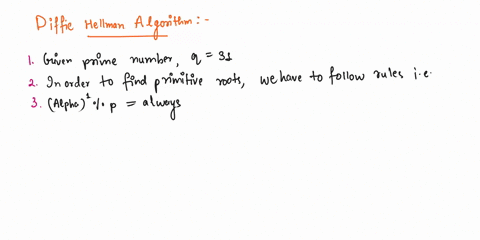 Diffie Hellman Algorithm:-
1. Given prime number, q = 31
2. In order to find primitive roots, we have to follow rules i.e.
3. (Alpha)^1 % p = always